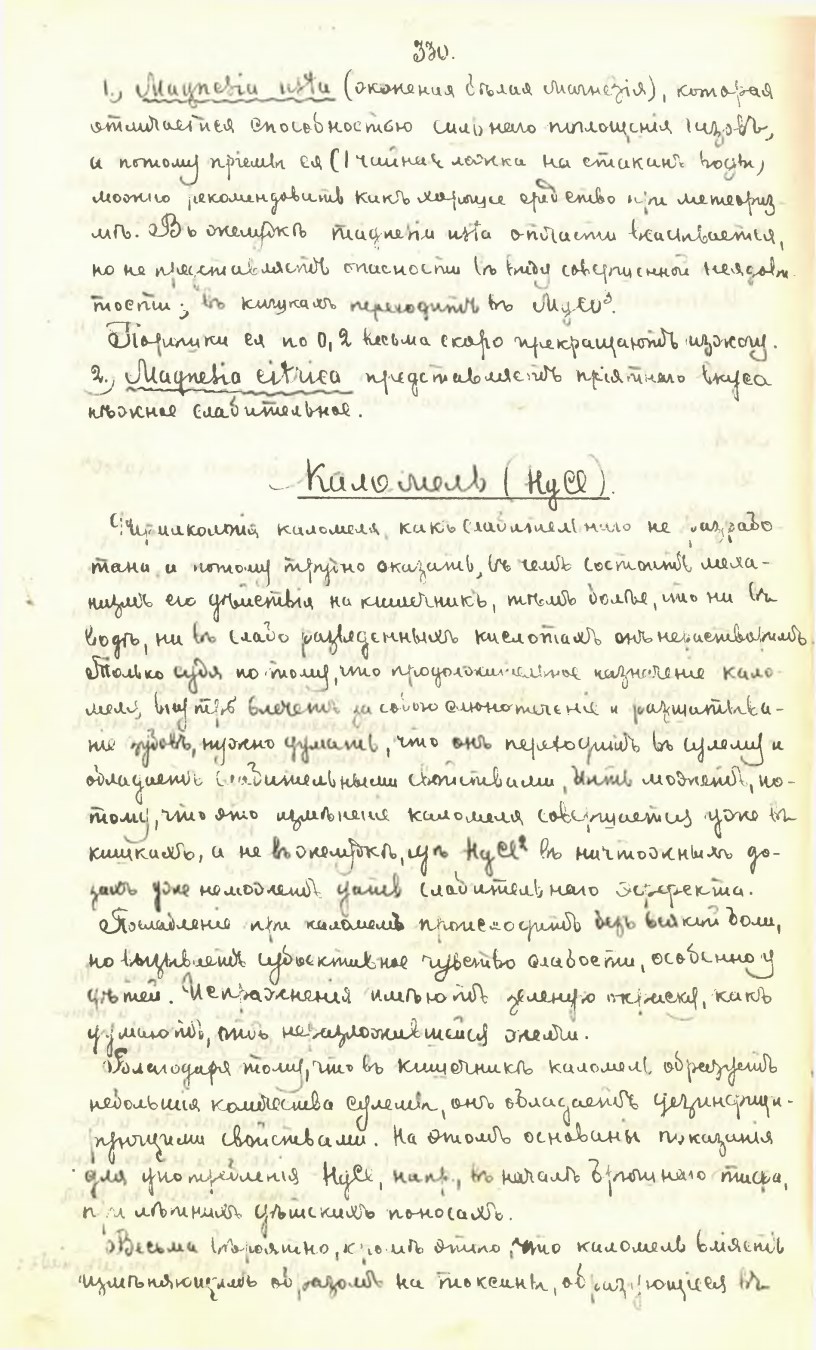 330.
1., Magnesia usta (жженая бѣлая магнезія), которая
отличается способностью сильнаго поглощенія газовъ,
а потому пріемы ея (1 чайная ложка на стаканъ воды)
можно рекомендовать какъ хорошее средство при метеориз-
мѣ. Въ желудкѣ magnesia usta отчасти всасывается,
но не представляетъ опасности въ виду совершенной неядови-
тости; въ кишкахъ переходитъ въ MgCO³.
Порошки ея по 0,2 весьма скоро прекращаютъ изжогу.
2., Magnesia citrica представляетъ пріятнаго вкуса
нѣжное слабительное.
Каломель (HgCl).
Фармакологія каломеля, какъ слабительнаго не разрабо-
тана и потому трудно сказать, въ чемъ состоитъ меха-
низмъ его дѣйствія на кишечникъ, тѣмъ болѣе, что ни въ
водѣ, ни въ слабо разведенныхъ кислотахъ онъ нерастворимъ.
Только судя по тому, что продолжительное назначеніе кало-
меля внутрь влечетъ за собою слюнотеченіе и расшатыва-
ніе зубовъ, нужно думать, что онъ переходитъ въ сулему и
обладаетъ слабительными свойствами, быть можетъ, по-
тому, что это измѣненіе каломеля совершается уже въ
кишкахъ, а не въ желудкѣ, гдѣ HgCl² въ ничтожныхъ до-
захъ уже неможетъ дать слабительнаго эффекта.
Послабленіе при каломелѣ происходитъ безъ всякой боли,
но вызываетъ субъективное чувство слабости, особенно у
дѣтей. Испражненія имѣютъ зеленую окраску, какъ
думаютъ, отъ неразложившейся желчи.
Благодаря тому, что въ кишечникѣ каломель образуетъ
небольшія количества сулемы, онъ обладаетъ дезинфици-
рующими свойствами. На этомъ основаны показанія
для употребленія HgCl, напр., въ началѣ брюшнаго тифа,
при лѣтнихъ дѣтскихъ поносахъ.
Весьма вѣроятно, кромѣ этого, что каломель вліяетъ
измѣняющимъ образомъ на токсины, образующіеся въ